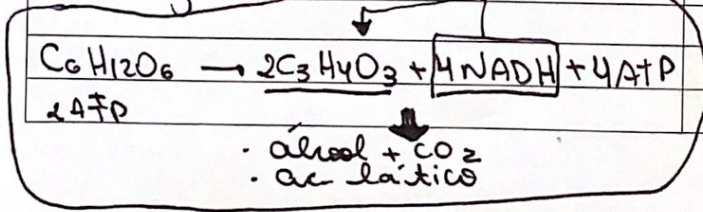 C6H12O6 → 2C3H4O3 + 4NADH + 4ATP
2ATP
• álcool + CO2
• ac. lático